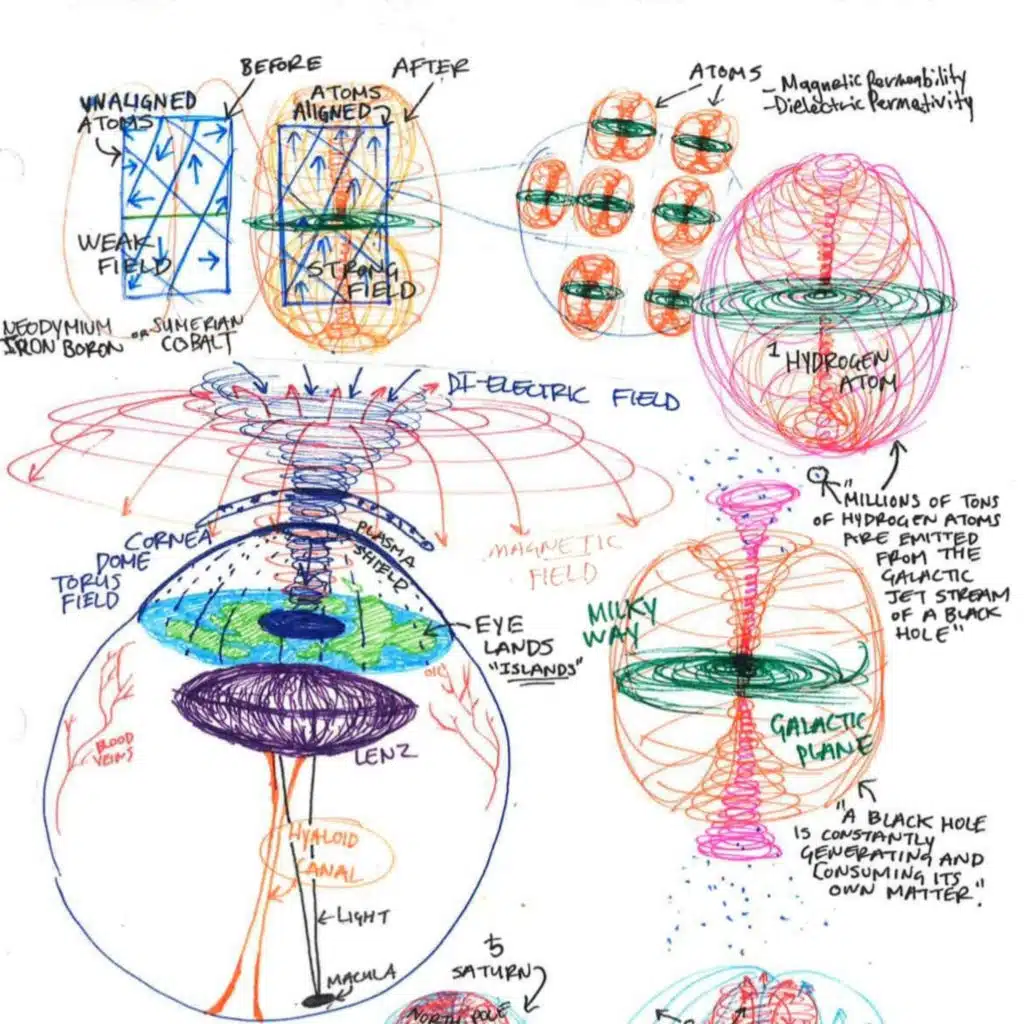 BEFORE
AFTER
UNALIGNED
ATOMS
ATOMS
ALIGNED
WEAK
FIELD
STRONG
FIELD
NEODYMIUM
IRON BORON
or SUMERIAN
COBALT
ATOMS
- Magnetic Permeability
- Dielectric Permativity
1 HYDROGEN
ATOM
DI-ELECTRIC FIELD
MAGNETIC
FIELD
CORNEA
DOME
TORUS
FIELD
PLASMA
SHIELD
EYE
LANDS
"ISLANDS"
BLOOD
VEINS
LENZ
HYALOID
CANAL
LIGHT
MACULA
"MILLIONS OF TONS
OF HYDROGEN ATOMS
ARE EMITTED
FROM THE
GALACTIC
JET STREAM
OF A BLACK
HOLE"
MILKY
WAY
GALACTIC
PLANE
"A BLACK HOLE
IS CONSTANTLY
GENERATING AND
CONSUMING ITS
OWN MATTER."
♄
SATURN
NORTH POLE